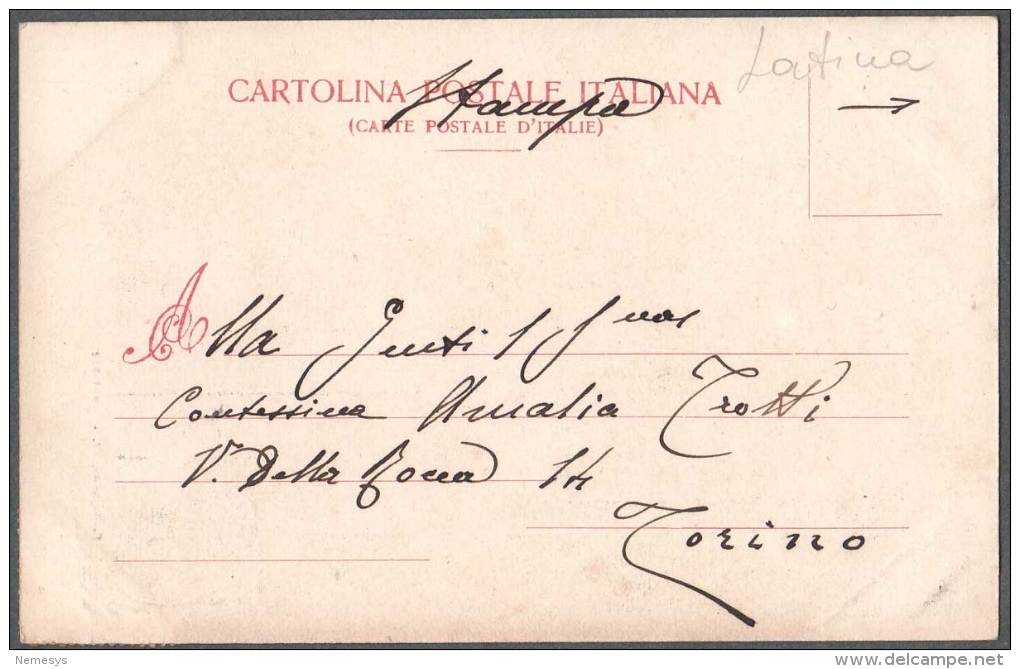 Latina
CARTOLINA POSTALE ITALIANA
Stampa
(CARTE POSTALE D'ITALIE)
Alla Gentil
Contessina Amalia Trotti
V. Della Rocca 14
Torino
Nemesys
www.delcampe.net